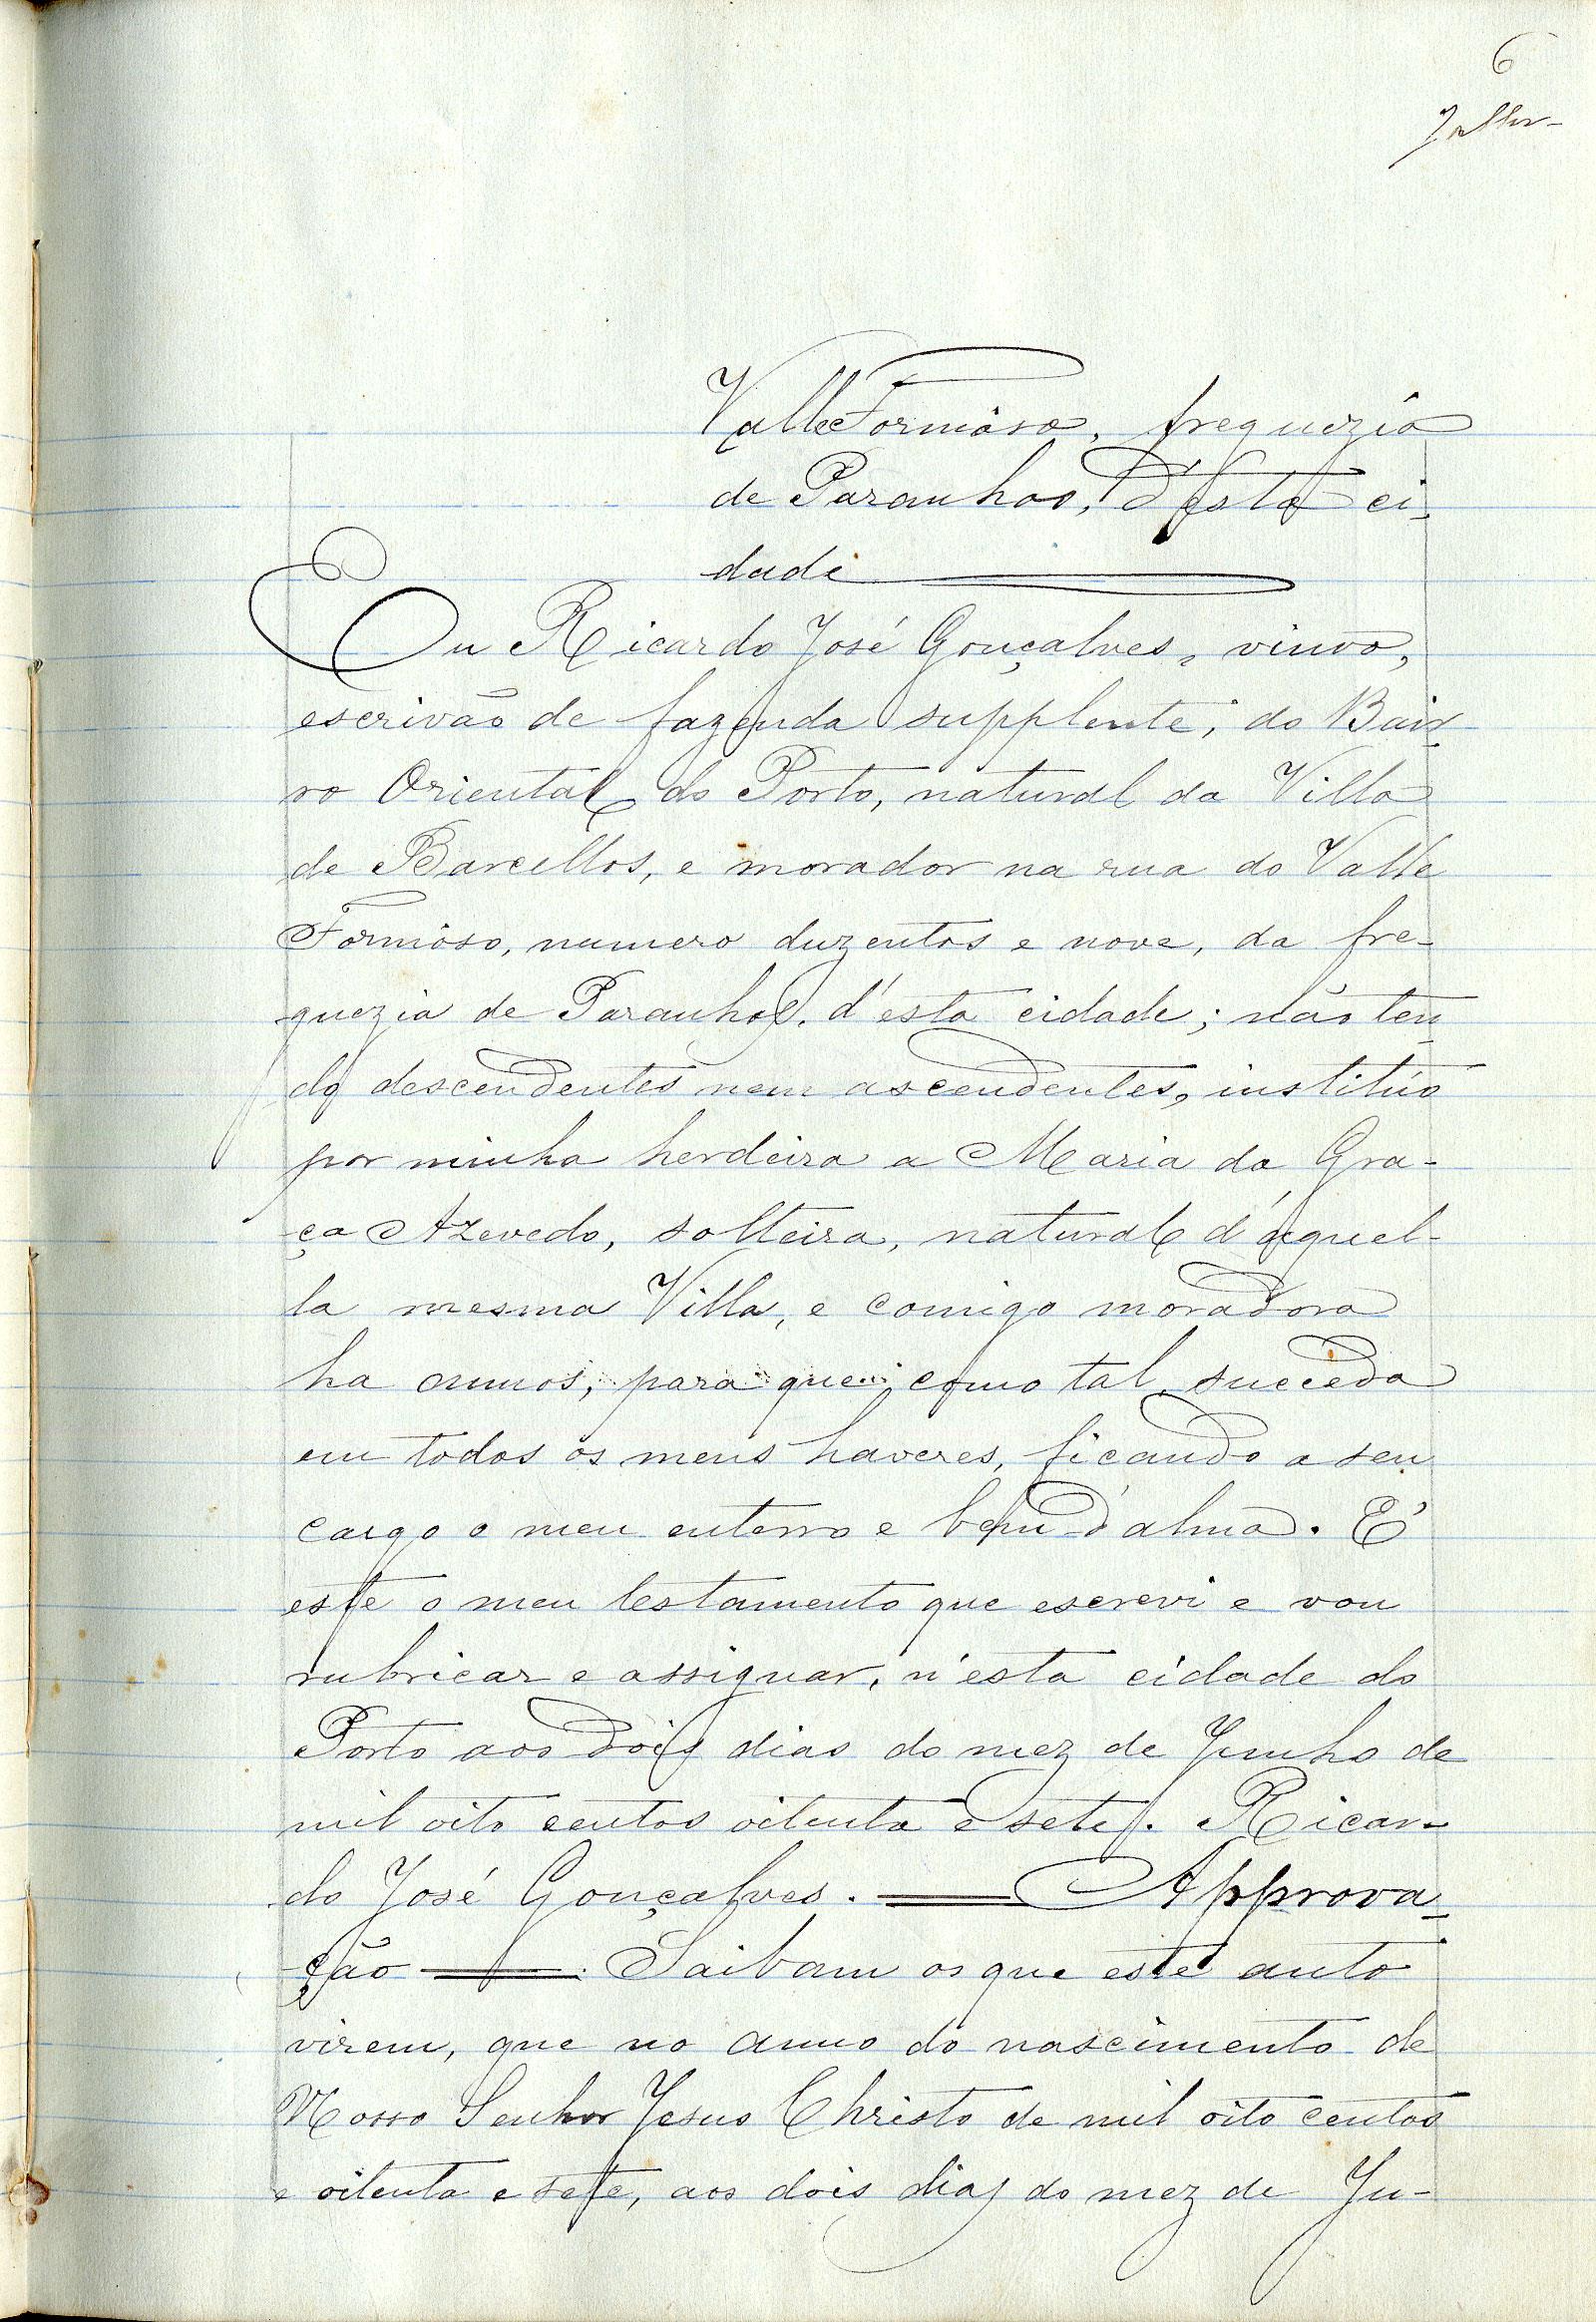 6
Valle Formôso, freguezia
de Paranhos, d'esta ci-
dade
Eu Ricardo José Gonçalves, viuvo,
escrivão de fazenda supplente, do Bair-
ro Oriental do Porto, natural da Villa
de Barcellos, e morador na rua do Valle
Formôso, numero duzentos e nove, da fre-
guezia de Paranhos, d'esta cidade; não ten-
do descendentes nem ascendentes, instituo
por minha herdeira a Maria da Gra-
ça Azevedo, solteira, natural d'aquel-
la mesma Villa, e comigo moradora
ha annos, para que, como tal, succeda
em todos os meus haveres, ficando a seu
cargo o meu enterro e bem d'alma. E'
este o meu testamento que escrevi e vou
rubricar e assignar, n'esta cidade do
Porto aos dois dias do mez de Junho de
mil oito centos oitenta e sete. Ricar-
do José Gonçalves. — Approva-
ção — Saibam os que este auto
virem, que no anno do nascimento de
Nosso Senhor Jesus Christo de mil oito centos
e oitenta e sete, aos dois dias do mez de Ju-